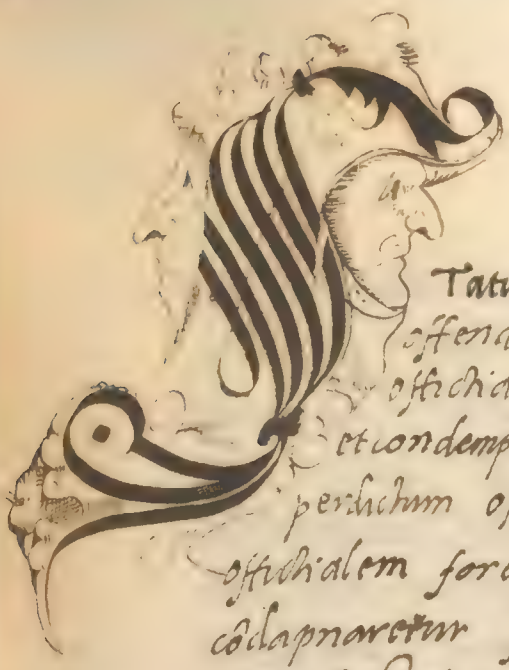 Tatu
offend
offitia
et condemp
perdictum of
offitialem fore
cōdapnaretur